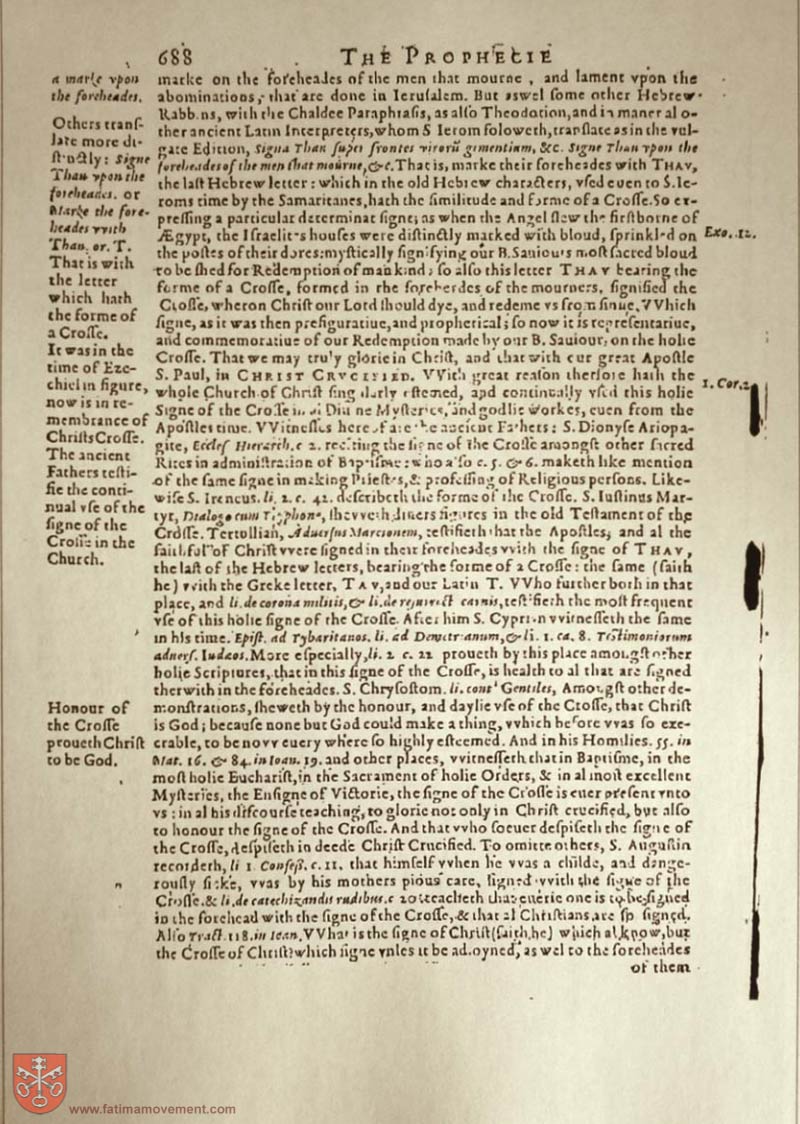 688 THE PROPHECIE
a marke vpon
the foreheades.
Others transſ-
late more di-
ſtinctly: Signe
Thau vpon the
foreheades. or
Marke the fore-
heades vvith
Thau, or, T.
That is with
the letter
which hath
the forme of
a Croſſe.
It was in the
time of Eze-
chiel in figure,
now is in re-
membrance of
Chriſts Croſſe.
The ancient
Fathers teſti-
fie the conti-
nual vſe of the
ſigne of the
Croſſe in the
Church.
Honour of
the Croſſe
proueth Chriſt
to be God.
marke on the foreheades of the men that mourne, and lament vpon the
abominations, that are done in Ieruſalem. But aswel ſome other Hebrew
Rabbins, with the Chaldee Paraphraſis, as alſo Theodotion, and in maner al o-
ther ancient Latin Interpreters, whom S Ierom foloweth, tranſlate as in the vul-
gate Edition, Signa Thau ſuper frontes virorũ gementium, &c. Signe Thau vpon the
foreheades of the men that mourne, &c. That is, marke their foreheades with THAV,
the laſt Hebrew letter: which in the old Hebrew characters, vſed euen to S. Ie-
roms time by the Samaritanes, hath the ſimilitude and forme of a Croſſe. So ex-
preſſing a particular determinat ſigne; as when the Angel ſlew the firſtborne of
Ægypt, the Iſraelites houſes were diſtinctly marked with bloud, ſprinkled on
the poſtes of their dores: myſtically ſignifying our B. Sauiours moſt ſacred bloud
to be ſhed for Redemption of mankind; ſo alſo this letter THAV bearing the
forme of a Croſſe, formed in the foreheades of the mourners, ſignified the
Croſſe, wheron Chriſt our Lord ſhould dye, and redeme vs from ſinne. VVhich
ſigne, as it was then prefiguratiue, and prophetical; ſo now it is repreſentatiue,
and commemoratiue of our Redemption made by our B. Sauiour, on the holie
Croſſe. That we may truly glorie in Chriſt, and that with our great Apoſtle
S. Paul, in CHRIST CRVCIFIED. VVith great reaſon therfore hath the
whole Church of Chriſt ſingularly eſtemed, and continually vſed this holie
Signe of the Croſſe in al Diuine Myſteries, and godlie workes, euen from the
Apoſtles time. VVitneſſes hereof are the ancient Fathers: S. Dionyſe Ariopa-
gite, Eccleſ Hierarch. c 2. reciting the ſigne of the Croſſe amongſt other ſacred
Rites in adminiſtration of Baptiſme: who alſo c. 5. & 6. maketh like mention
of the ſame ſigne in making Prieſts, & profeſſing of Religious perſons. Like-
wiſe S. Ireneus. li. 2. c. 42. deſcribeth the forme of the Croſſe. S. Iuſtinus Mar-
tyr, Dialogo cum Tryphone, ſhevveth diuers figures in the old Teſtament of the
Croſſe. Tertullian, Aduerſus Marcionem, teſtifieth that the Apoſtles, and al the
faithful of Chriſt vvere ſigned in their foreheades vvith the ſigne of THAV,
the laſt of the Hebrew letters, bearing the forme of a Croſſe: the ſame (ſaith
he) vvith the Greke letter, TAV, and our Latin T. VVho further both in that
place, and li. de corona militis, & li. de reſurrect carnis, teſtifieth the moſt frequent
vſe of this holie ſigne of the Croſſe. After him S. Cyprian vvitneſſeth the ſame
in his time. Epiſt. ad Tybaritanos. li. ad Demetrianum, & li. 1. ca. 8. Teſtimoniorum
aduerſ. Iudæos. More eſpecially, li. 2 c. 22 proueth by this place amongſt other
holie Scriptures, that in this ſigne of the Croſſe, is health to al that are ſigned
therwith in the foreheades. S. Chryſoſtom. li. cont' Gentiles, Amongſt other de-
monſtrations, ſheweth by the honour, and daylie vſe of the Croſſe, that Chriſt
is God; becauſe none but God could make a thing, vvhich before vvas ſo exe-
crable, to be novv euery where ſo highly eſteemed. And in his Homilies. 55. in
Mat. 16. & 84. in Ioan. 19. and other places, vvitneſſeth that in Baptiſme, in the
moſt holie Euchariſt, in the Sacrament of holie Orders, & in al moſt excellent
Myſteries, the Enſigne of Victorie, the ſigne of the Croſſe is euer preſent vnto
vs: in al his diſcourſe teaching, to glorie not only in Chriſt crucified, but alſo
to honour the ſigne of the Croſſe. And that vvho ſoeuer deſpiſeth the ſigne of
the Croſſe, deſpiſeth in deede Chriſt Crucified. To omitte others, S. Auguſtin
recordeth, li 1. Confeſſ. c. 11. that himſelf vvhen he vvas a childe, and dange-
rouſly ſicke, vvas by his mothers pious care, ſigned vvith the ſigne of the
Croſſe. & li. de catechizandis rudibus. c 20 teacheth that euerie one is to be ſigned
in the forehead with the ſigne of the Croſſe, & that al Chriſtians are ſo ſigned.
Alſo Tract. 118. in Ioan. VVhat is the ſigne of Chriſt (ſaith he) which al know, but
the Croſſe of Chriſt? which ſigne vnles it be adioyned, as wel to the foreheades
of them
Exo. 12.
1. Cor. 2.
www.fatimamovement.com